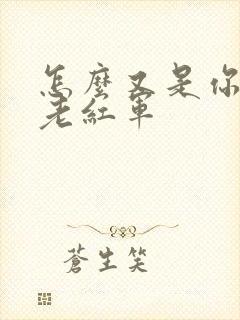 怎麼又是你
老紅軍
蒼生笑